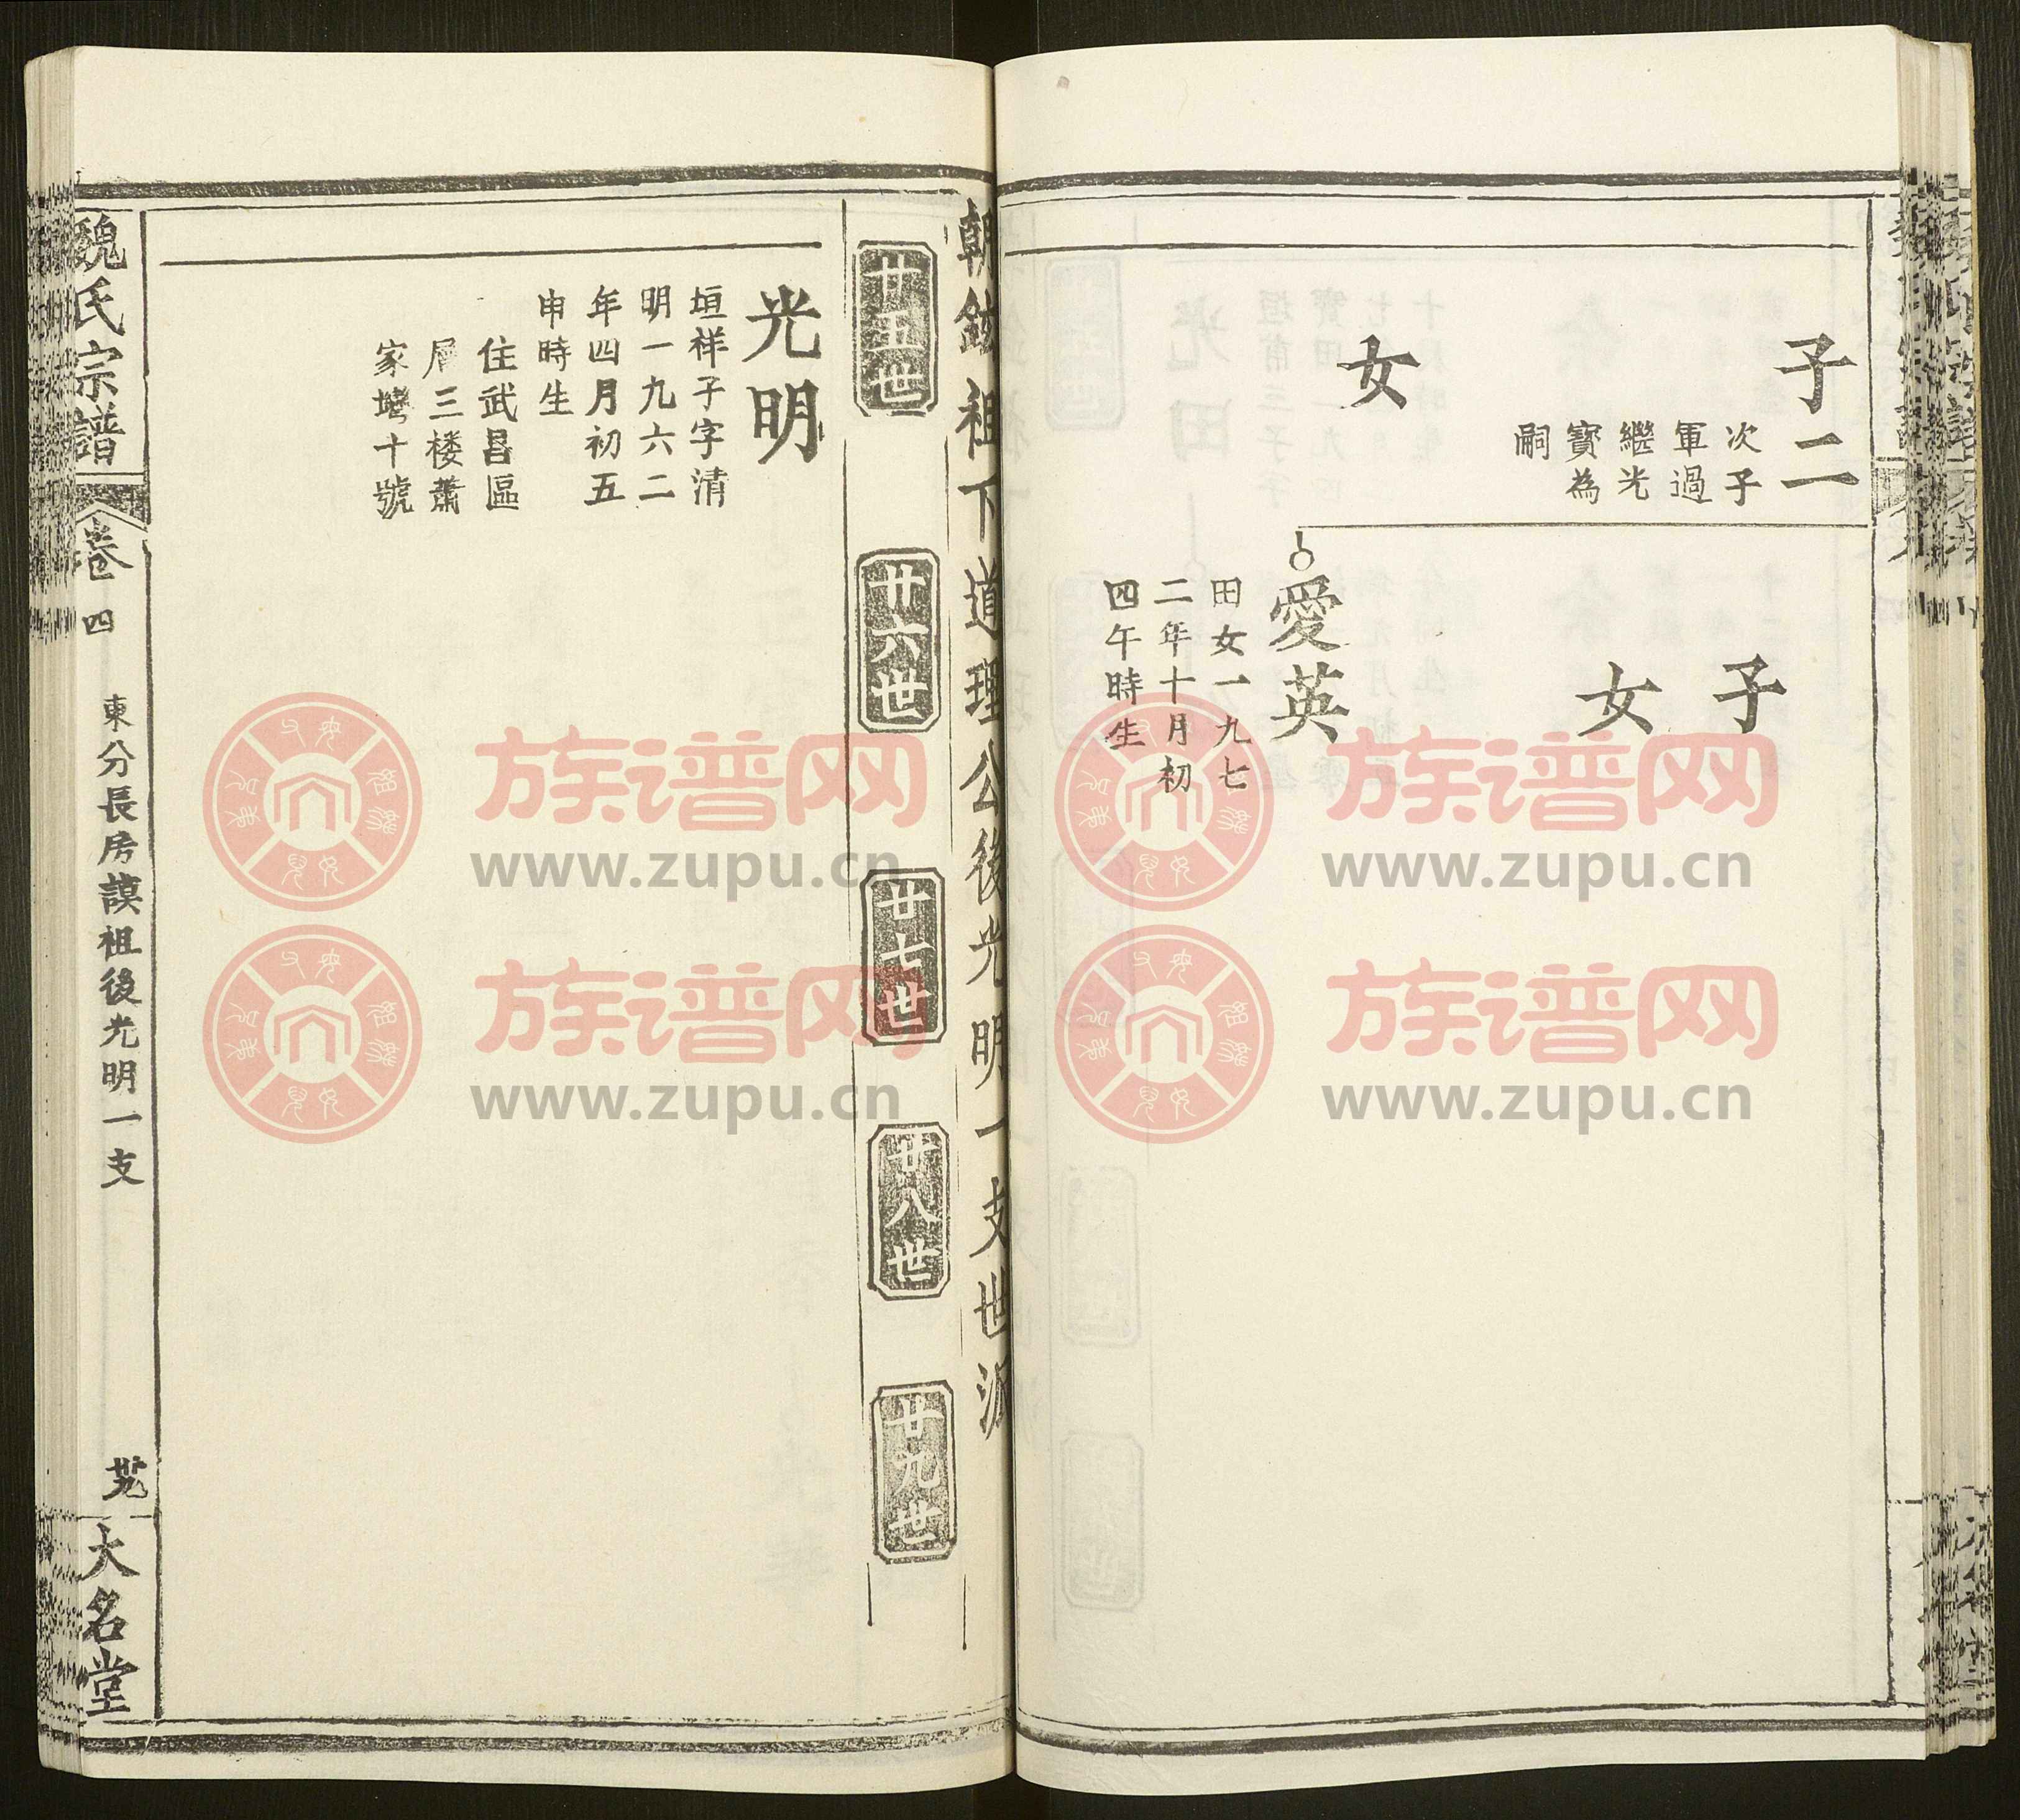 子二
次子
軍過
繼光
寶為
嗣
女
子
女
愛英
田女一九七
二年十月初
四午時生
祖下道理公後光明一支世派
廿五世
廿六世
廿七世
廿八世
廿九世
光明
垣祥子字清
明一九六二
年四月初五
申時生
住武昌區
三楼蕭
家塆十號
魏氏宗譜
卷四
東分長房謨祖後光明一支
大名堂
族谱网
www.zupu.cn
族谱网
www.zupu.cn
族谱网
www.zupu.cn
族谱网
www.zupu.cn